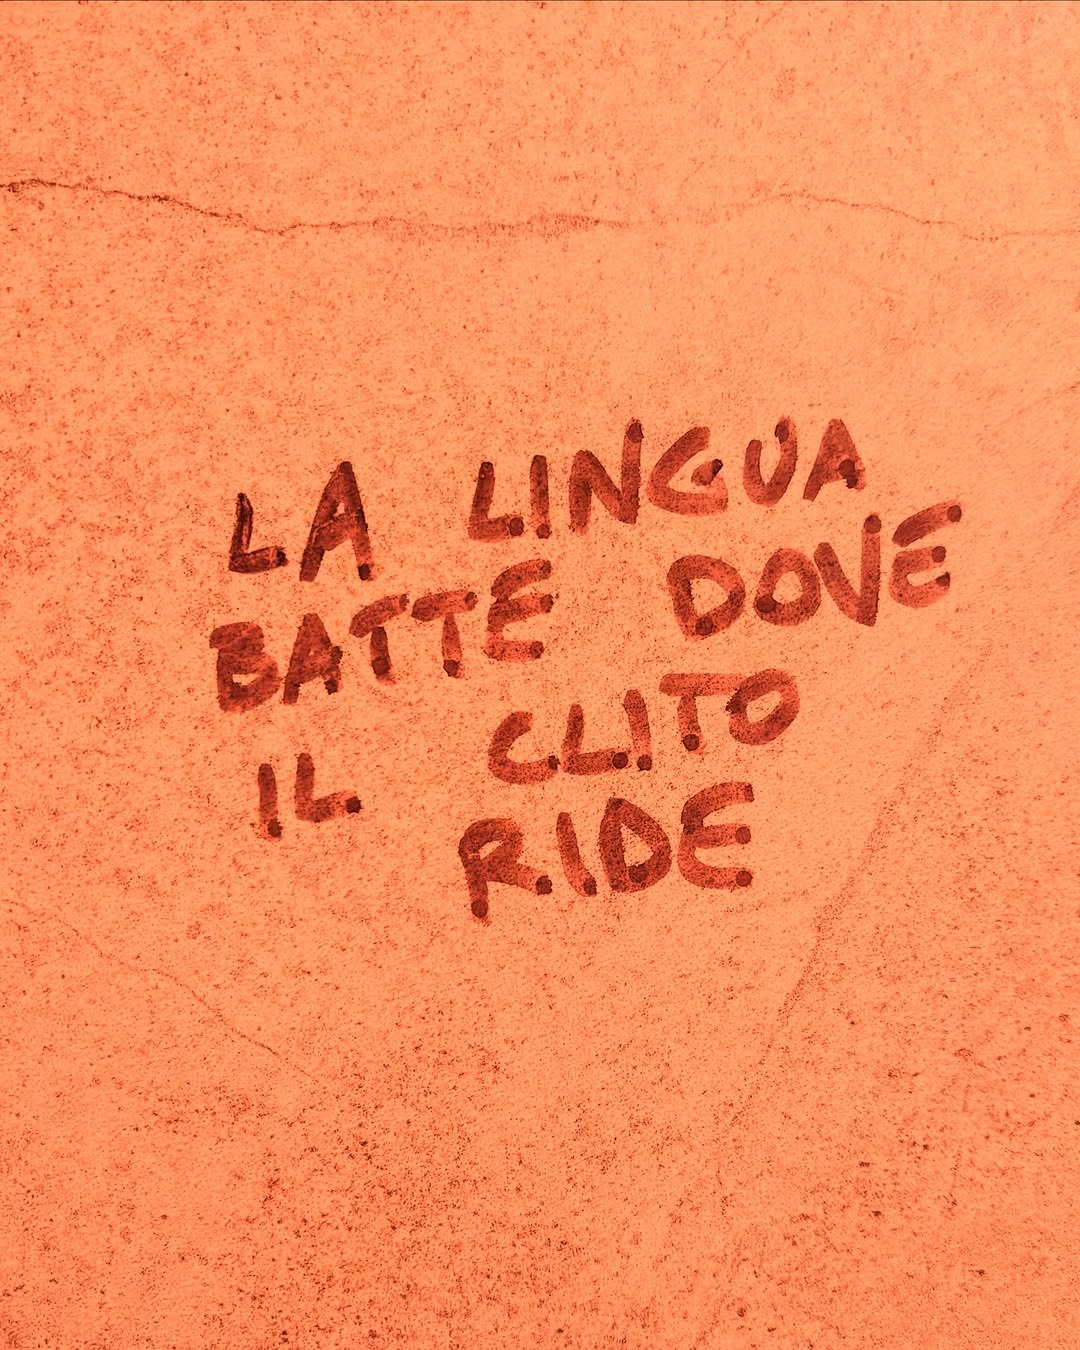 LA LINGUA
BATTE DOVE
IL CLITO
RIDE